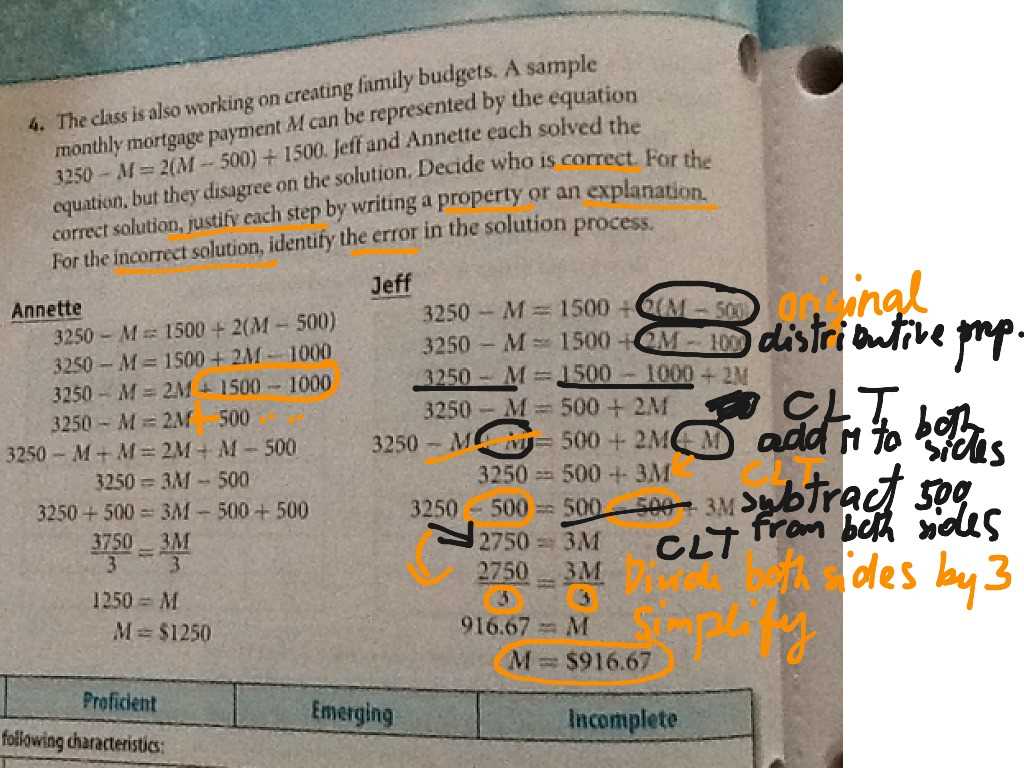 4. The class is also working on creating family budgets. A sample
monthly mortgage payment M can be represented by the equation
3250 – M = 2(M – 500) + 1500. Jeff and Annette each solved the
equation, but they disagree on the solution. Decide who is correct. For the
correct solution, justify each step by writing a property or an explanation.
For the incorrect solution, identify the error in the solution process.
Annette
3250 – M = 1500 + 2(M – 500)
3250 – M = 1500 + 2M – 1000
3250 – M = 2M + 1500 – 1000
3250 – M = 2M + 500
3250 – M + M = 2M + M – 500
3250 = 3M – 500
3250 + 500 = 3M – 500 + 500
3750/3 = 3M/3
1250 = M
M = $1250
Jeff
3250 – M = 1500 + 2(M – 500) original
3250 – M = 1500 + 2M – 1000 distributive prop.
3250 – M = 1500 – 1000 + 2M
3250 – M = 500 + 2M CLT
3250 – M + M = 500 + 2M + M add M to both sides
3250 = 500 + 3M CLT
3250 – 500 = 500 – 500 + 3M subtract 500 from both sides
2750 = 3M CLT
2750/3 = 3M/3 Divide both sides by 3
916.67 = M Simplify
M = $916.67
Proficient
Emerging
Incomplete
following characteristics: